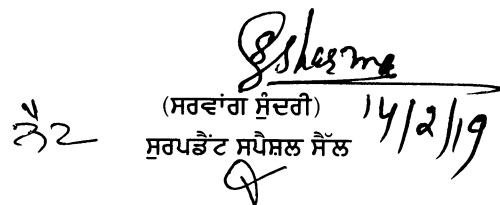 Sharma
(ਸਰਵਾਂਗ ਸੁੰਦਰੀ)
14/2/19
ਨੈਟ
ਸੁਰਪਡੈਂਟ ਸਪੈਸ਼ਲ ਸੈੱਲ